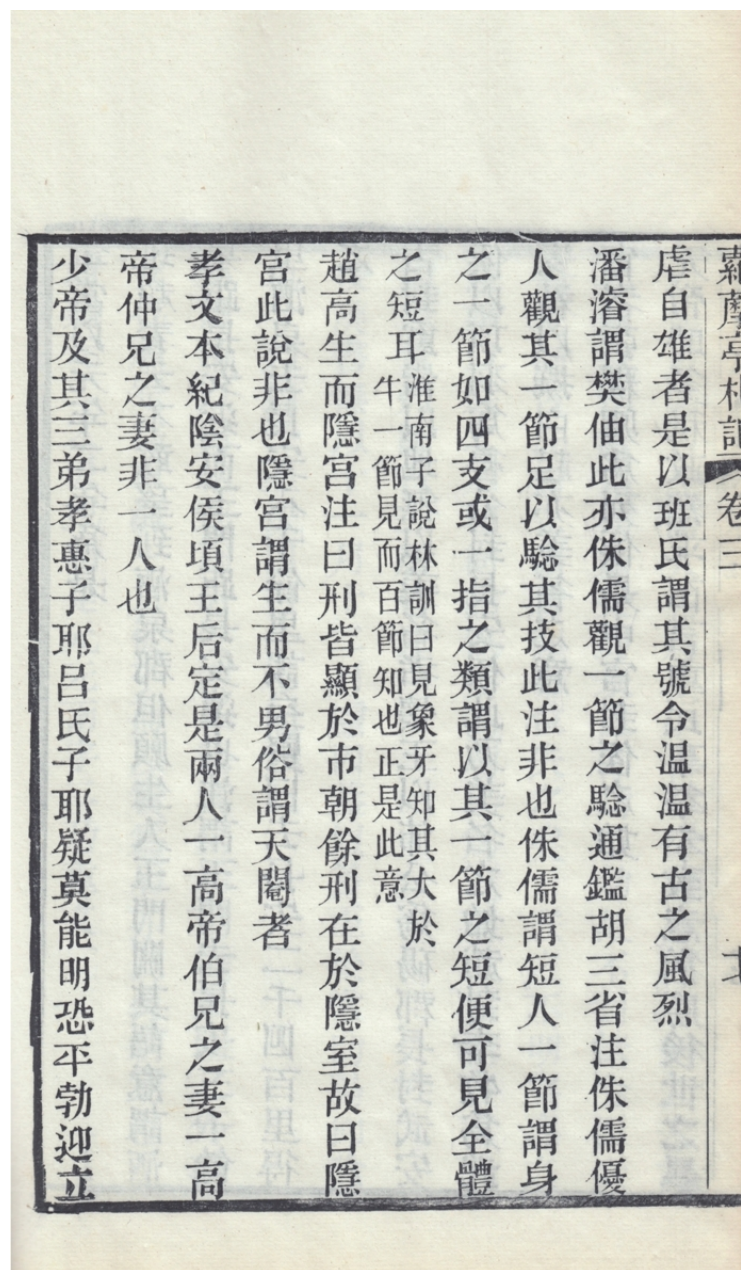 蘿藦亭札記 卷三
虐自雄者是以班氏謂其號令温温有古之風烈
潘濬謂樊伷此亦侏儒觀一節之騐通鑑胡三省注侏儒優
人觀其一節足以騐其技此注非也侏儒謂短人一節謂身
之一節如四支或一指之類謂以其一節之短便可見全體
之短耳淮南子說林訓曰見象牙知其大於
牛一節見而百節知也正是此意
趙高生而隱宮注曰刑皆顯於市朝餘刑在於隱室故曰隱
宮此說非也隱宮謂生而不男俗謂天閹者
孝文本紀陰安侯頃王后定是兩人一高帝伯兄之妻一高
帝仲兄之妻非一人也
少帝及其三弟孝惠子耶呂氏子耶疑莫能明恐平勃迎立